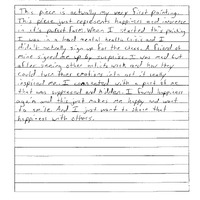 This piece is actually my very first painting.
This piece just represents happiness and innocence
in it's purest form. When I started this painting
I was in a bad mental health crisis and I
didn't actually sign up for the class. A friend of
mine signed me up by surprise. I was mad but
after seeing other artists work and how they
could turn their emotions into art it really
inspired me. I connected with a part of me
that was suppressed and hidden. I found happiness
again and this just makes me happy and want
to smile. And I just want to share that
happiness with others.